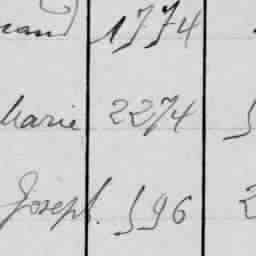 1774
Marie 2274
Joseph. 596 2